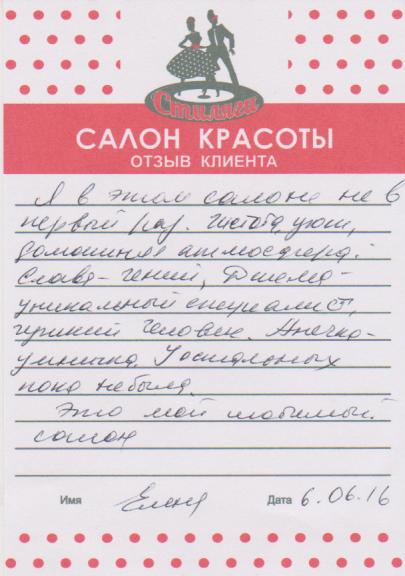 Стиляга
САЛОН КРАСОТЫ
ОТЗЫВ КЛИЕНТА
Я в этом салоне не в
первый раз. Чистота, уют,
домашняя атмосфера.
Слава - гений,
уникальный специалист,
человек. Анечка -
умничка. У остальных
пока не была.
Это мой любимый
салон
Имя Елена Дата 6.06.16